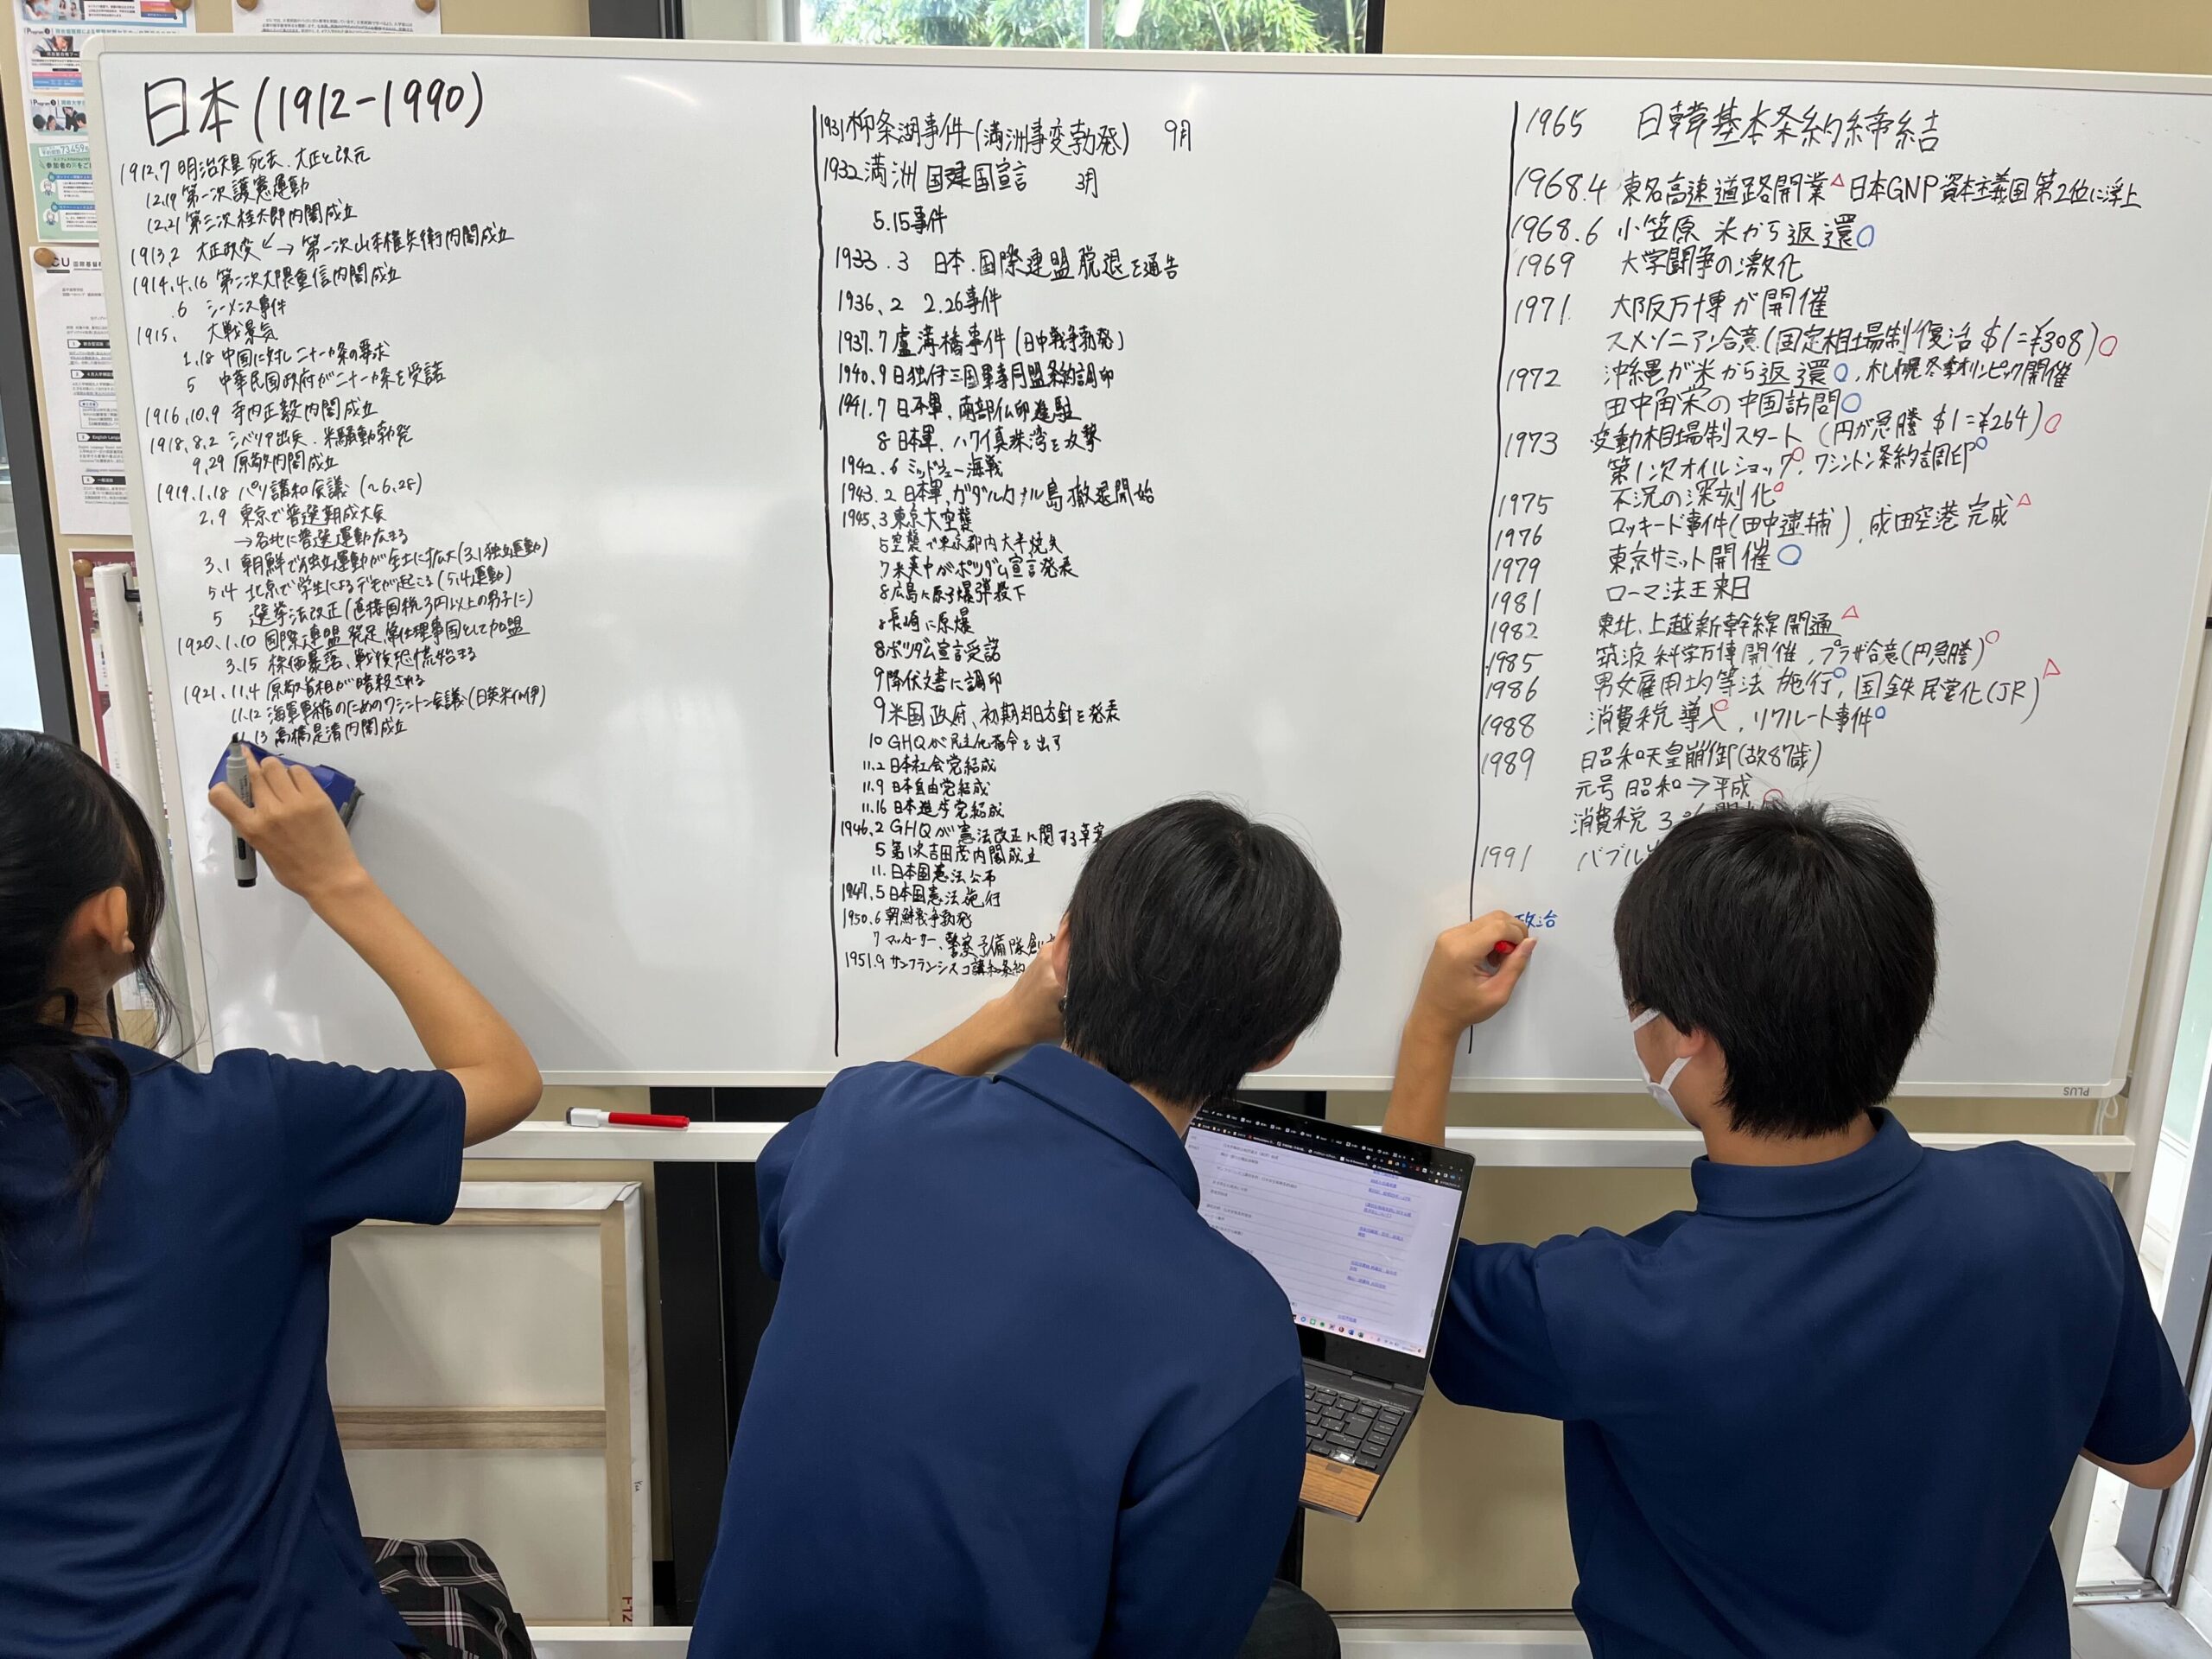 日本(1912-1990)
1912.7 明治天皇 死去、大正と改元
12.19 第一次護憲運動
12.21 第三次桂太郎内閣成立
1913.2 大正政変 → 第一次山本権兵衛内閣成立
1914.4.16 第二次大隈重信内閣成立
.6 シーメンス事件
1915. 大戦景気
1.18 中国に対し二十一カ条の要求
5 中華民国政府が二十一カ条を受諾
1916.10.9 寺内正毅内閣成立
1918.8.2 シベリア出兵、米騒動勃発
9.29 原敬内閣成立
1919.1.18 パリ講和会議 (~6.28)
2.9 東京で普選期成大会
→各地に普選運動広まる
3.1 朝鮮で独立運動が全土に拡大(3.1独立運動)
5.4 北京で学生によるデモが起こる(5.4運動)
5 選挙法改正(直接国税3円以上の男子に)
1920.1.10 国際連盟発足、常任理事国として加盟
3.15 株価暴落、戦後恐慌始まる
1921.11.4 原敬首相が暗殺される
11.12 海軍軍縮のためのワシントン会議(日英米仏伊)
11.13 高橋是清内閣成立
1931 柳条湖事件(満洲事変勃発) 9月
1932 満洲国建国宣言 3月
5.15事件
1933.3 日本、国際連盟脱退を通告
1936.2 2.26事件
1937.7 盧溝橋事件(日中戦争勃発)
1940.9 日独伊三国軍事同盟条約調印
1941.7 日本軍、南部仏印進駐
8 日本軍、ハワイ真珠湾を攻撃
1942.6 ミッドウェー海戦
1943.2 日本軍、ガダルカナル島撤退開始
1945.3 東京大空襲
5 空襲で東京都内大半焼失
7 米英中がポツダム宣言発表
8 広島に原子爆弾投下
8 長崎に原爆
8 ポツダム宣言受諾
9 降伏文書に調印
9 米国政府、初期対日方針を発表
10 GHQが民主化指令を出す
11.2 日本社会党結成
11.9 日本自由党結成
11.16 日本進歩党結成
1946.2 GHQが憲法改正に関する草案
5 第1次吉田茂内閣成立
11. 日本国憲法公布
1947.5 日本国憲法施行
1950.6 朝鮮戦争勃発
7 マッカーサー、警察予備隊創
1951.9 サンフランシスコ講和条約
1965 日韓基本条約締結
1968.4 東名高速道路開業△日本GNP資本主義国第2位に浮上
1968.6 小笠原 米から返還○
1969 大学闘争の激化
1971. 大阪万博が開催
スメソニアン合意(国定相場制復活 $1=¥308)○
1972 沖縄が米から返還○、札幌冬季オリンピック開催
田中角栄の中国訪問○
1973 変動相場制スタート (円が急騰 $1=¥264)○
第1次オイルショック○、ワシントン条約調印○
1975 不況の深刻化○
1976 ロッキード事件(田中逮捕)、成田空港完成△
1979 東京サミット開催○
1981 ローマ法王来日
1982 東北、上越新幹線開通△
1985 筑波科学万博開催、プラザ合意(円急騰)○
1986 男女雇用均等法 施行○、国鉄民営化(JR)△
1988 消費税導入○、リクルート事件○
1989 日昭和天皇崩御(故87歳)
元号 昭和→平成
消費税 3%
1991 バブル
政治
PLUS